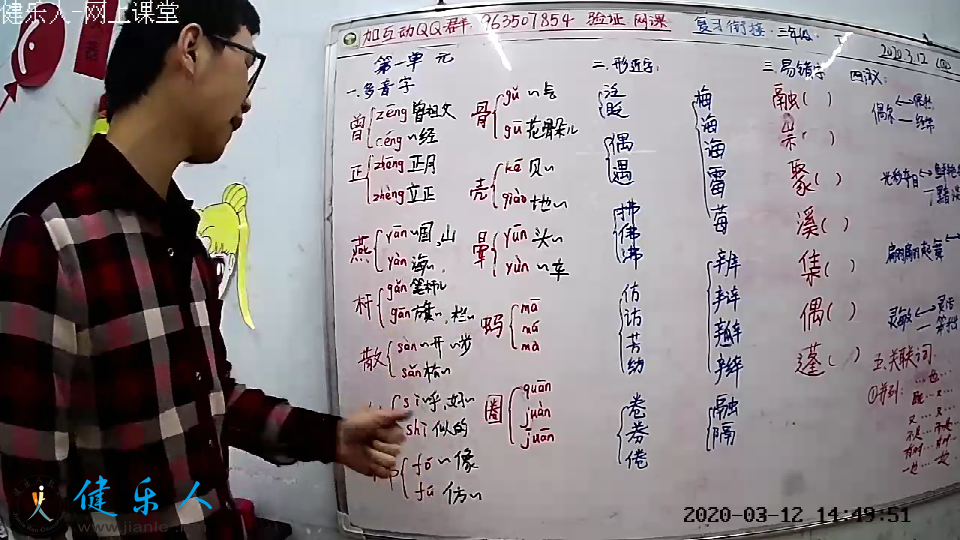 健乐人-网上课堂
加互动QQ群 963507854 验证 网课
复习衔接:三年级
2020.3.12
第一单元
一.多音字
曾 zēng 曾祖父
céng ~经
正 zhēng 正月
zhèng 立正
燕 yān ~国,~山
yàn 海~
杆 gǎn 笔杆儿
gān 方旗~,栏~
散 sàn ~开 ~步
sǎn
sì 呼,好~
shì 似的
fó ~像
fú 仿~
骨 gǔ ~气
gū 花骨朵儿
壳 ké 贝~
qiào 地~
晕 yūn 头~
yùn ~车
蚂 mā
mǎ
mà
圈 quān
juàn
juān
二.形近字:
泛
贬
偶
遇
拂
佛
沸
仿
访
芳
纺
卷
券
倦
梅
海
诲
霉
莓
辨
辩
瓣
辫
融
隔
三.易错字
融( )
( )
聚( )
溪( )
集( )
偶( )
蓬( )
四.
偶尔
翩翩起舞
灵敏
五.关联词
①并列:
…也…
既…又…
又…又…
不是…而是…
有时…有时…
一边…一边…
健乐人
www.jianle
2020-03-12 14:49:51